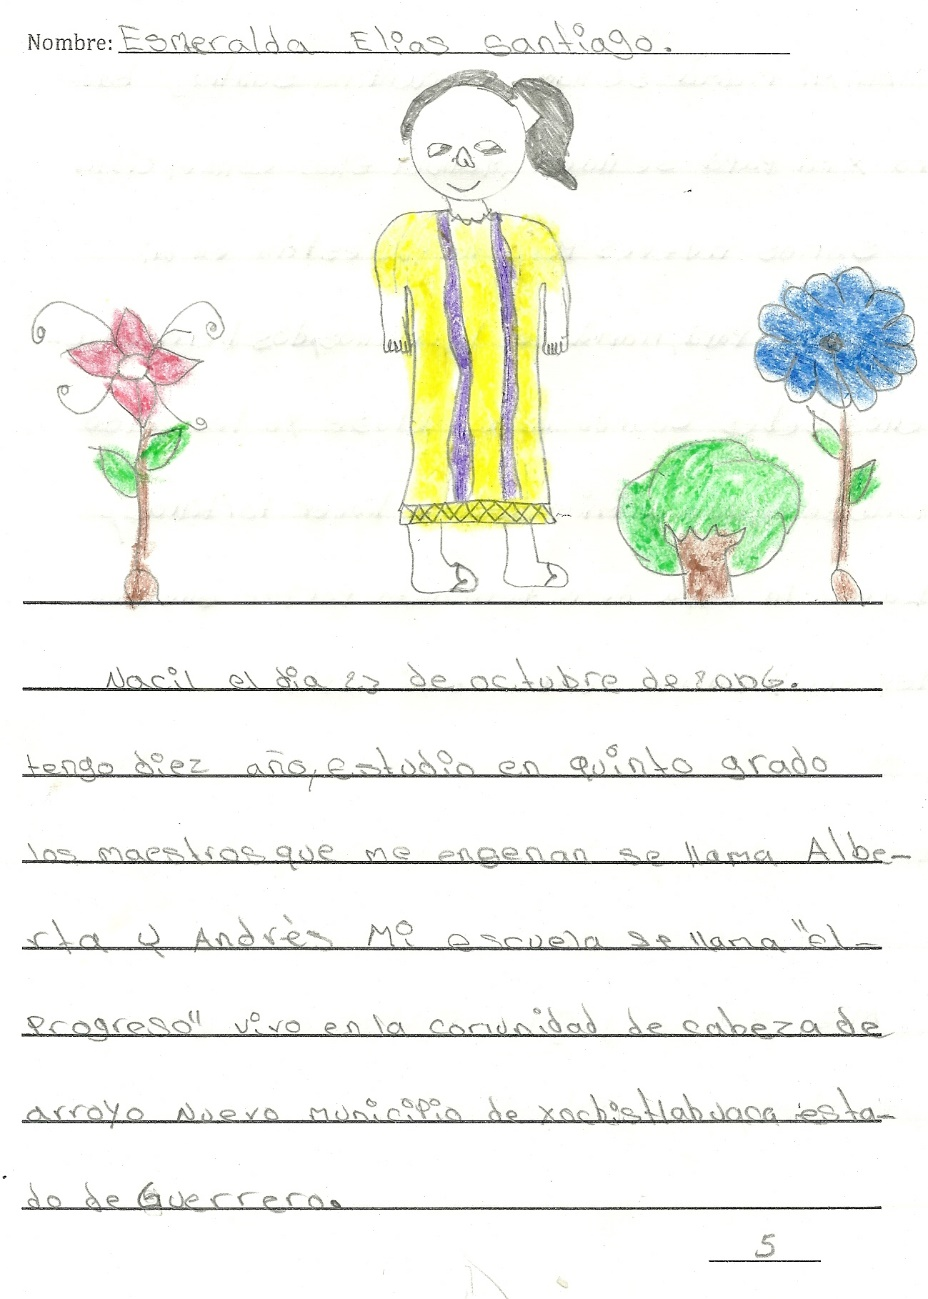 Nombre: Esmeralda Elias Santiago.
Nacil el dia 23 de octubre de 2006.
tengo diez año, estudio en quinto grado
los maestros que me engenan se llama Albe-
rta y Andrès Mi escuela se llama "el-
progreso" vivo en la comunidad de cabeza de
arroyo Nuevo municipio de xochistlahuaca esta-
do de Guerrero.
5